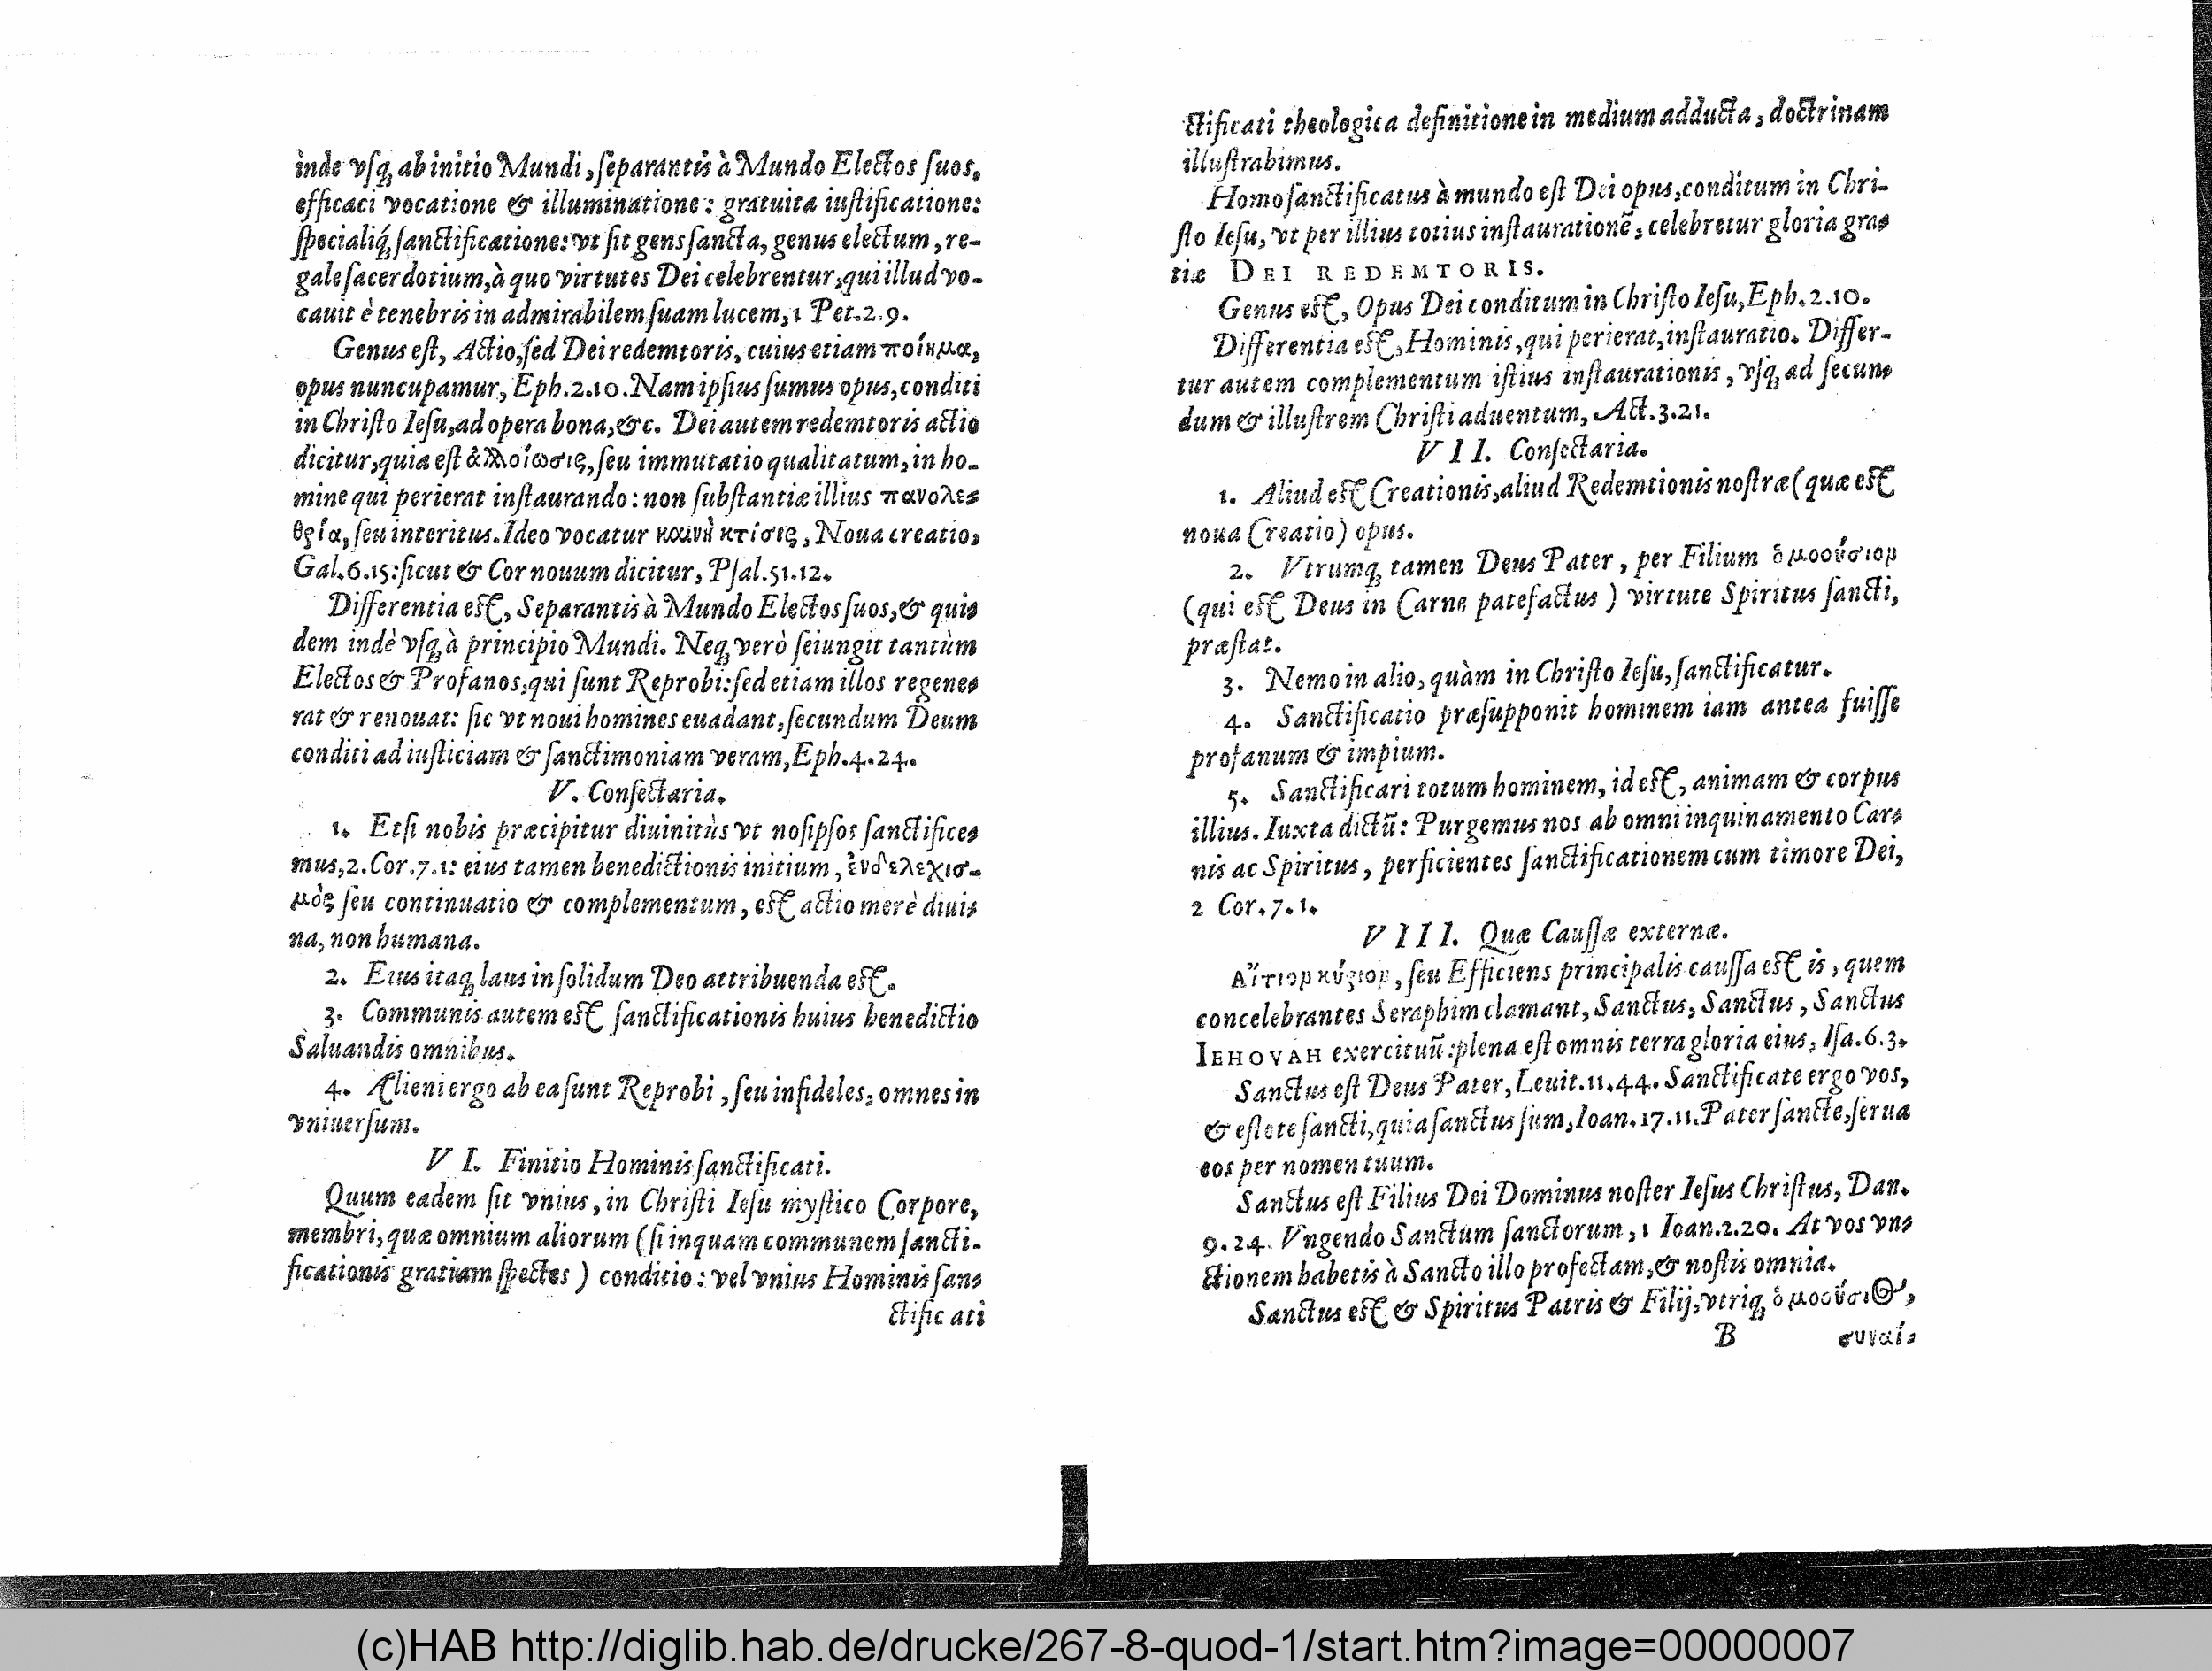 inde vſq; ab initio Mundi, ſeparantis à Mundo Electos ſuos,
efficaci vocatione & illuminatione: gratuita iuſtificatione:
ſpecialiq́; ſanctificatione: vt ſit gens ſancta, genus electum, re-
gale ſacerdotium, à quo virtutes Dei celebrentur, qui illud vo-
cauit è tenebris in admirabilem ſuam lucem, 1 Pet.2.9.
Genus eſt, Actio, ſed Dei redemtoris, cuius etiam ποίημα,
opus nuncupamur, Eph.2.10. Nam ipſius ſumus opus, conditi
in Chriſto Ieſu, ad opera bona, &c. Dei autem redemtoris actio
dicitur, quia eſt ἀλλοίωσις, ſeu immutatio qualitatum, in ho-
mine qui perierat inſtaurando: non ſubſtantiæ illius πανολε-
θρία, ſeu interitus. Ideo vocatur καινὴ κτίσις, Noua creatio,
Gal.6.15: ſicut & Cor nouum dicitur, Pſal.51.12.
Differentia eſt, Separantis à Mundo Electos ſuos, & qui-
dem indè vſq; à principio Mundi. Neq; verò ſeiungit tantùm
Electos & Profanos, qui ſunt Reprobi: ſed etiam illos regene-
rat & renouat: ſic vt noui homines euadant, ſecundum Deum
conditi ad iuſticiam & ſanctimoniam veram, Eph.4.24.
V. Conſectaria.
1. Etſi nobis præcipitur diuinitùs vt noſipſos ſanctifice-
mus, 2.Cor.7.1: eius tamen benedictionis initium, ἐνδελεχισ-
μὸς ſeu continuatio & complementum, eſt actio merè diui-
na, non humana.
2. Eius itaq; laus in ſolidum Deo attribuenda eſt.
3. Communis autem eſt ſanctificationis huius benedictio
Saluandis omnibus.
4. Alieni ergo ab ea ſunt Reprobi, ſeu infideles, omnes in
vniuerſum.
VI. Finitio Hominis ſanctificati.
Quum eadem ſit vnius, in Chriſti Ieſu myſtico Corpore,
membri, quæ omnium aliorum (ſi inquam communem ſancti-
ficationis gratiam ſpectes) conditio: vel vnius Hominis ſan-
ctificati
ctificati theologica definitione in medium adducta, doctrinam
illuſtrabimus.
Homo ſanctificatus à mundo eſt Dei opus, conditum in Chri-
ſto Ieſu, vt per illius totius inſtaurationē, celebretur gloria gra-
tiæ DEI REDEMTORIS.
Genus eſt, Opus Dei conditum in Chriſto Ieſu, Eph.2.10.
Differentia eſt, Hominis, qui perierat, inſtauratio. Differ-
tur autem complementum iſtius inſtaurationis, vſq́; ad ſecun-
dum & illuſtrem Chriſti aduentum, Act.3.21.
VII. Conſectaria.
1. Aliud eſt Creationis, aliud Redemtionis noſtræ (quæ eſt
noua Creatio) opus.
2. Vtrumq; tamen Deus Pater, per Filium ὁμοούσιον
(qui eſt Deus in Carne patefactus) virtute Spiritus ſancti,
præſtat.
3. Nemo in alio, quàm in Chriſto Ieſu, ſanctificatur.
4. Sanctificatio præſupponit hominem iam antea fuiſſe
profanum & impium.
5. Sanctificari totum hominem, id eſt, animam & corpus
illius. Iuxta dictū: Purgemus nos ab omni inquinamento Car-
nis ac Spiritus, perficientes ſanctificationem cum timore Dei,
2 Cor.7.1.
VIII. Quæ Cauſſæ externæ.
Αἴτιον κύριον, ſeu Efficiens principalis cauſſa eſt is, quem
concelebrantes Seraphim clamant, Sanctus, Sanctus, Sanctus
IEHOVAH exercituū: plena eſt omnis terra gloria eius, Iſa.6.3.
Sanctus eſt Deus Pater, Leuit.11.44. Sanctificate ergo vos,
& eſtote ſancti, quia ſanctus ſum, Ioan.17.11. Pater ſancte, ſerua
eos per nomen tuum.
Sanctus eſt Filius Dei Dominus noſter Ieſus Chriſtus, Dan.
9.24. Vngendo Sanctum ſanctorum, 1 Ioan.2.20. At vos vn-
ctionem habetis à Sancto illo profectam, & noſtis omnia.
Sanctus eſt & Spiritus Patris & Filij, vtriq; ὁμοούσιος,
B συναί-
(c)HAB http://diglib.hab.de/drucke/267-8-quod-1/start.htm?image=00000007